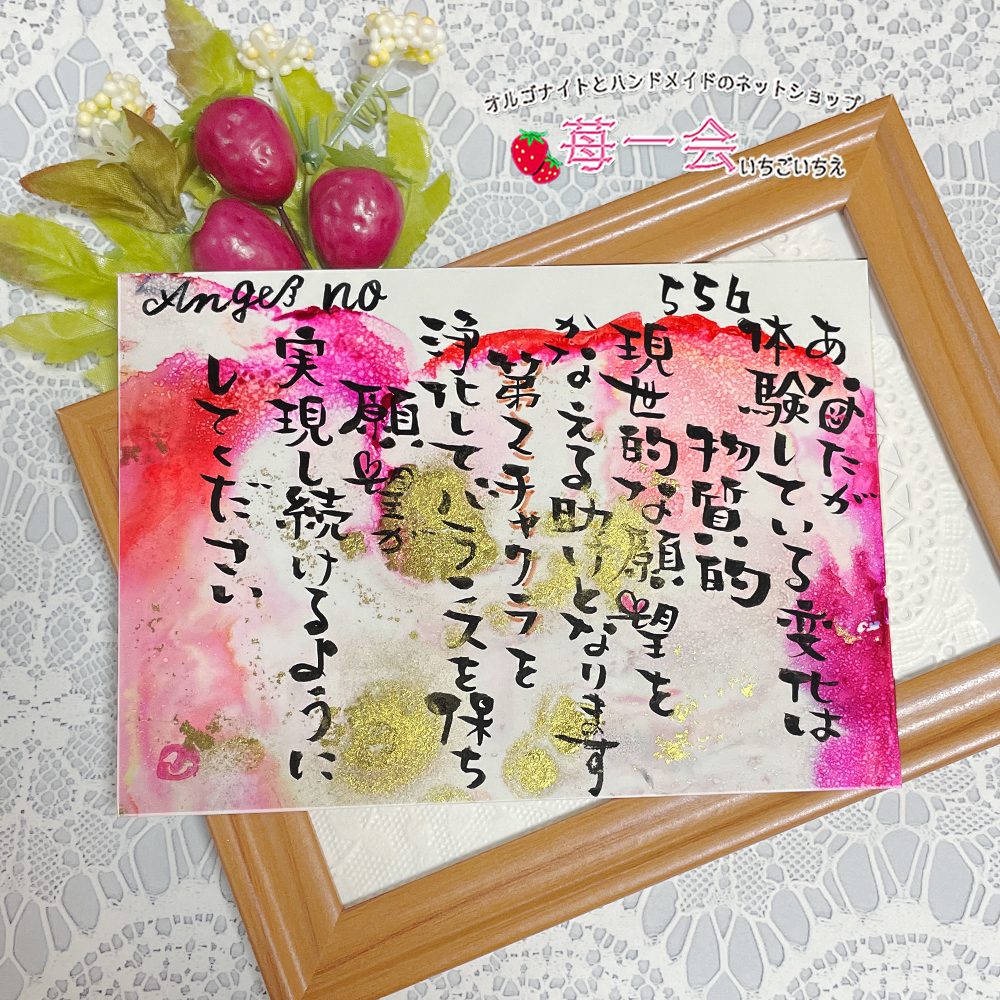 オルゴナイトとハンドメイドのネットショップ
苺一会
いちごいちえ
Angel no 556
あなたが
体験している変化は
物質的
現世的な願望を
かなえる助けとなります
第2チャクラを
浄化してバランスを保ち
願望が
実現し続けるように
してください